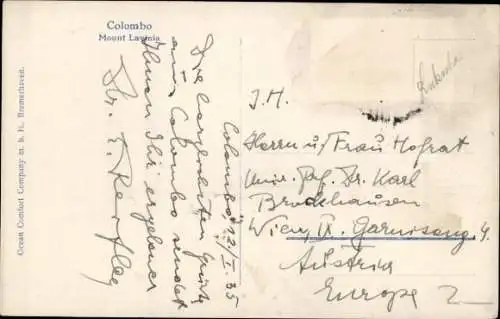 Colombo
Mount Lavinia
Ocean Comfort Company m. b. H., Bremerhaven.
Colombo, 12/I. 35
Die herzlichsten Grüße
aus Colombo sendet
Ihnen Ihr ergebener
Dr.
I. H.
Herrn u/ Frau Hofrat
Univ. Prof. Dr. Karl
Brockhausen
Wien, IX. Garnisong. 4.
Austria
Europe